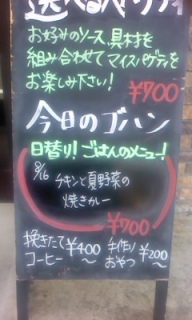 選べるスパゲティ
お好みのソース、具材を
組み合わせてマイスパゲティを
お楽しみ下さい!
¥700
今日のゴハン
日替り!ごはんのメニュー!
8/16
チキンと夏野菜の
焼きカレー
¥700
挽きたて ¥400
コーヒー 〜
手作り ¥200
おやつ 〜